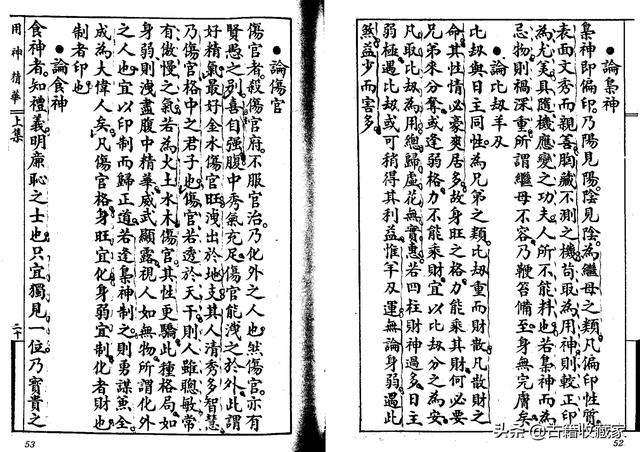 ●論梟神
梟神即偏印乃陽見陽陰見陰為繼母之類凡偏印性質
表面文秀而親善胸藏不測之機苟取為用神則較正印
為尤美具隨機應變之功夫人所不能料也若梟神而為
忌物則禍深重所謂繼母不容乃鞭笞備至身無完膚矣
●論比劫羊刃
比劫與日主同性為兄弟之類比劫重而財散凡散財之
命其性情必豪爽居多故身旺之格力能乘其財何必要
兄弟來分奪或逢弱格力不能乘財宜以比劫分之為安
凡取比劫為用總歸虛花無實惠若四柱財神過多日主
弱極遇比劫或可稍得其利益惟羊刃運無論身弱遇此
然益少而害多
52
●論傷官
傷官者殺傷官府不服官治乃化外之人也然傷官亦有
賢愚之列喜自強腹中秀氣充足傷官能洩之於外此謂
好精氣最好金水傷官旺洩出於地支其人清秀多智慧
乃傷官格中之君子也傷官若透於天干則人雖聰敏常
有傲慢之氣若為火土水木傷官其性更驕此種格局如
身弱則洩盡腹中精華威武顯露視人如無物所謂化外
之人也宜以印制而歸正道若逢梟神制之則勇謀兼全
成為大偉人矣凡傷官格身旺宜化身弱宜制化者財也
制者印也
●論食神
食神者知禮義明廉恥之士也只宜獨見一位乃實貴之
用神精華
上集
二十
53
头条@古籍收藏家